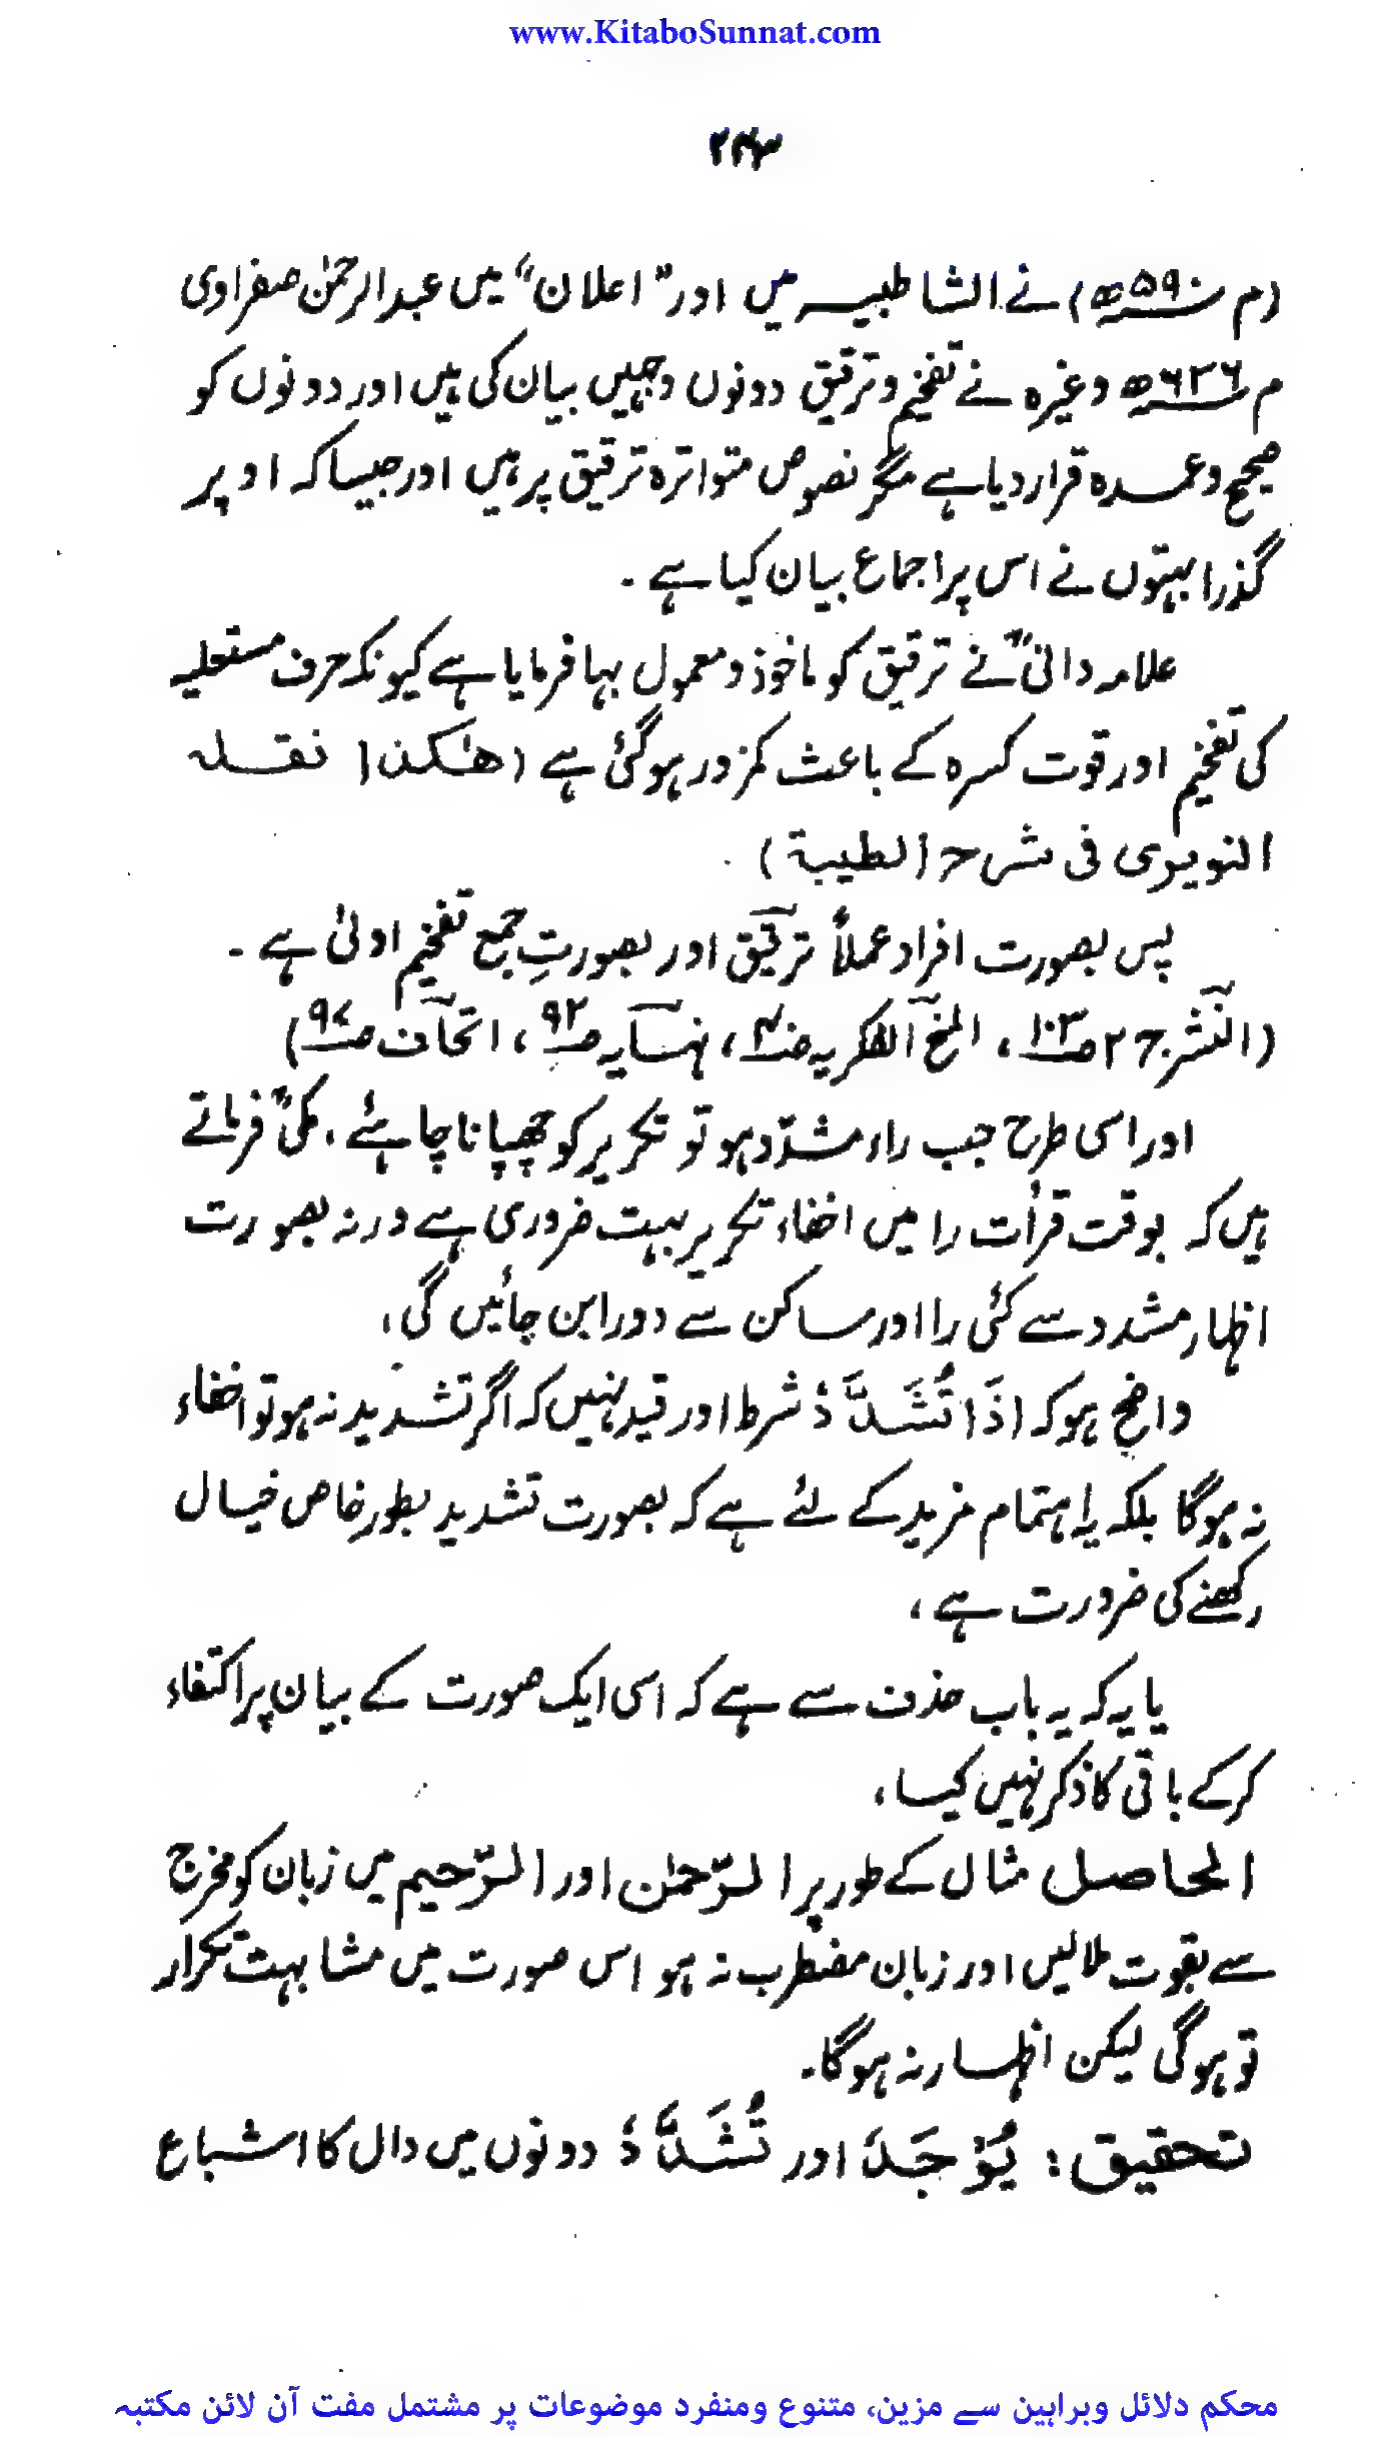 www.KitaboSunnat.com
۲۴۳
(م ۵۹۰ھ) نے الشاطبیہ میں اور ”اعلان“ میں عبدالرحمٰن صفراوی
م ۶۳۶ھ وغیرہ نے تفخیم و ترقیق دونوں وجہیں بیان کی ہیں اور دونوں کو
صحیح و عمدہ قرار دیا ہے مگر نصوص متواترہ ترقیق پر ہیں اور جیسا کہ اوپر
گذرا بہتوں نے اس پر اجماع بیان کیا ہے ۔
علامہ دانیؒ نے ترقیق کو ماخوذ و معمول بہا فرمایا ہے کیونکہ حرف مستعلیہ
کی تفخیم اور قوت کسرہ کے باعث کمزور ہوگئی ہے (ھٰکذا نقلہ
النویری فی شرح الطیبۃ)
پس بصورت افراد عملاً ترقیق اور بصورتِ جمع تفخیم اولیٰ ہے ۔
(النشر ج ۲ ص ۱۰۳، المنح الفکریہ ص، نہایہ ص ۹۲، اتحاف ص ۹۷)
اور اسی طرح جب راء مشدّد ہو تو تکریر کو چھپانا چاہئے، مکیؒ فرماتے
ہیں کہ بوقت قرأت را میں اخفاء تکریر بہت ضروری ہے ورنہ بصورت
اظہار مشدد سے کئی را اور ساکن سے دو را بن جائیں گی،
واضح ہو کہ اِذَا تُشَدَّدُ شرط اور قید نہیں کہ اگر تشدید نہ ہو تو اخفاء
نہ ہوگا بلکہ یہ اہتمام مزید کے لئے ہے کہ بصورت تشدید بطور خاص خیال
رکھنے کی ضرورت ہے،
یا یہ کہ یہ باب حذف سے ہے کہ اسی ایک صورت کے بیان پر اکتفاء
کرکے باقی کا ذکر نہیں کیا،
الحاصل مثال کے طور پر الرّحمٰن اور الرّحیم میں زبان کو مخرج
سے بقوت ملالیں اور زبان مضطرب نہ ہو اس صورت میں مشابہت تکرار
تو ہوگی لیکن اظہار نہ ہوگا۔
تحقیق: یُوْجَدُ اور تُشَدَّدُ دونوں میں دال کا اشباع
محکم دلائل وبراہین سے مزین، متنوع ومنفرد موضوعات پر مشتمل مفت آن لائن مکتبہ